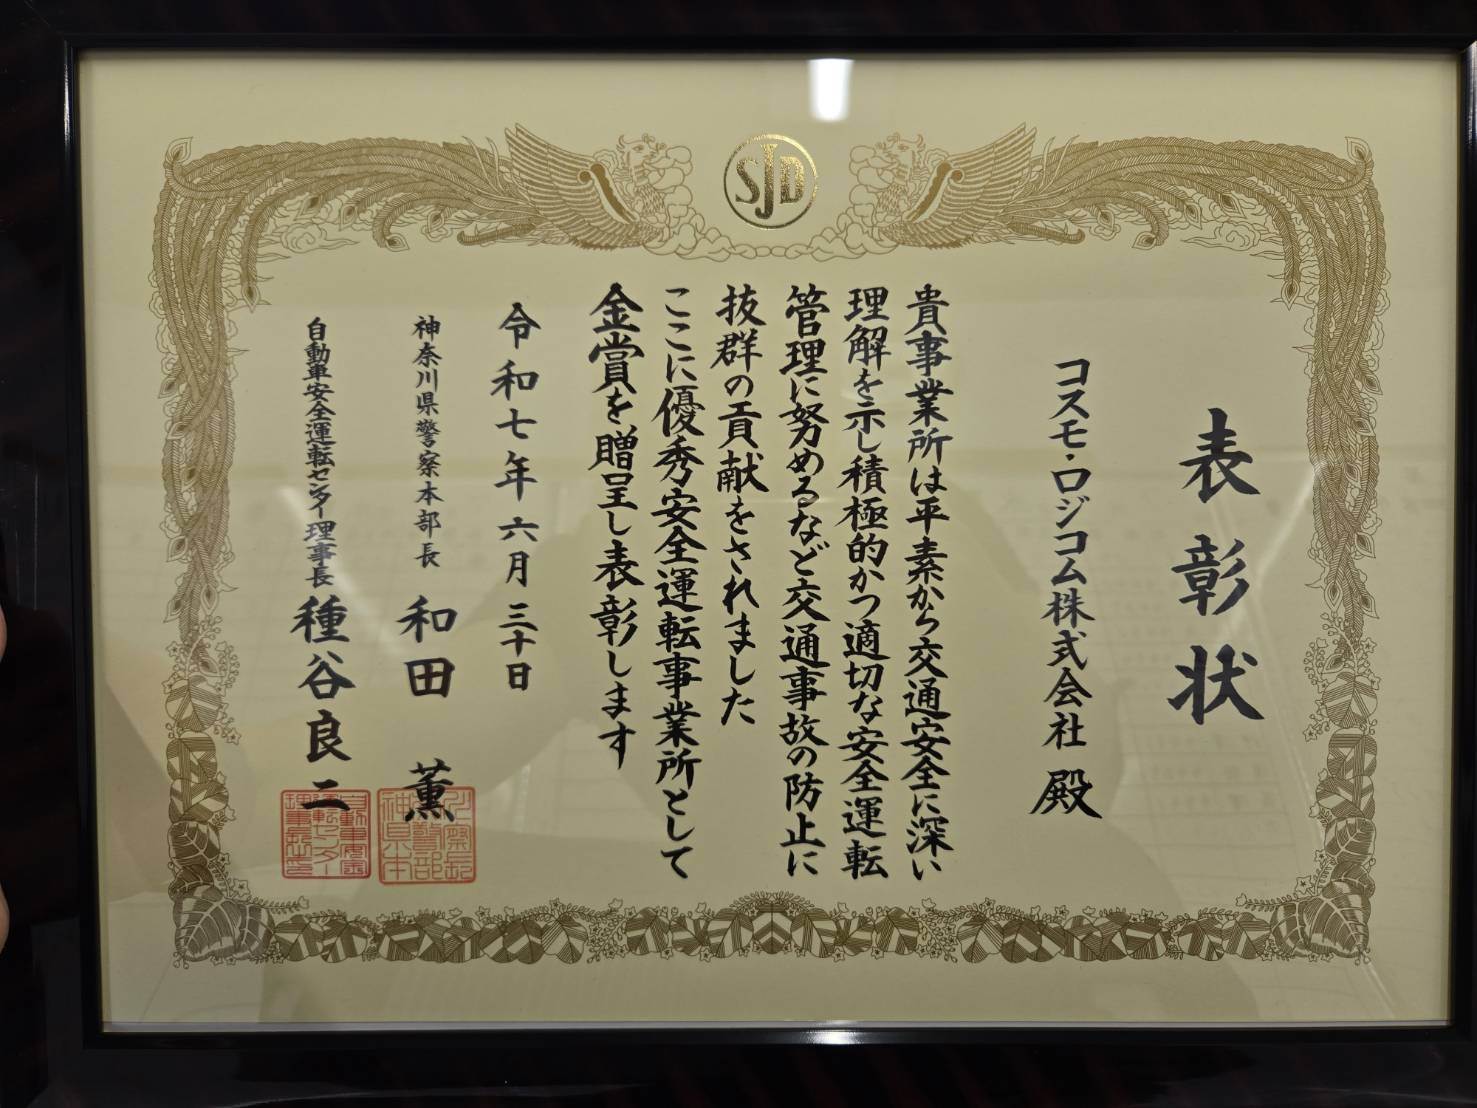 SJD
表彰状
コスモ・ロジコム株式会社 殿
貴事業所は平素から交通安全に深い
理解を示し積極的かつ適切な安全運転
管理に努めるなど交通事故の防止に
抜群の貢献をされました
ここに優秀安全運転事業所として
金賞を贈呈し表彰します
令和七年六月三十日
神奈川県警察本部長 和田 薫
自動車安全運転センター理事長 種谷良二